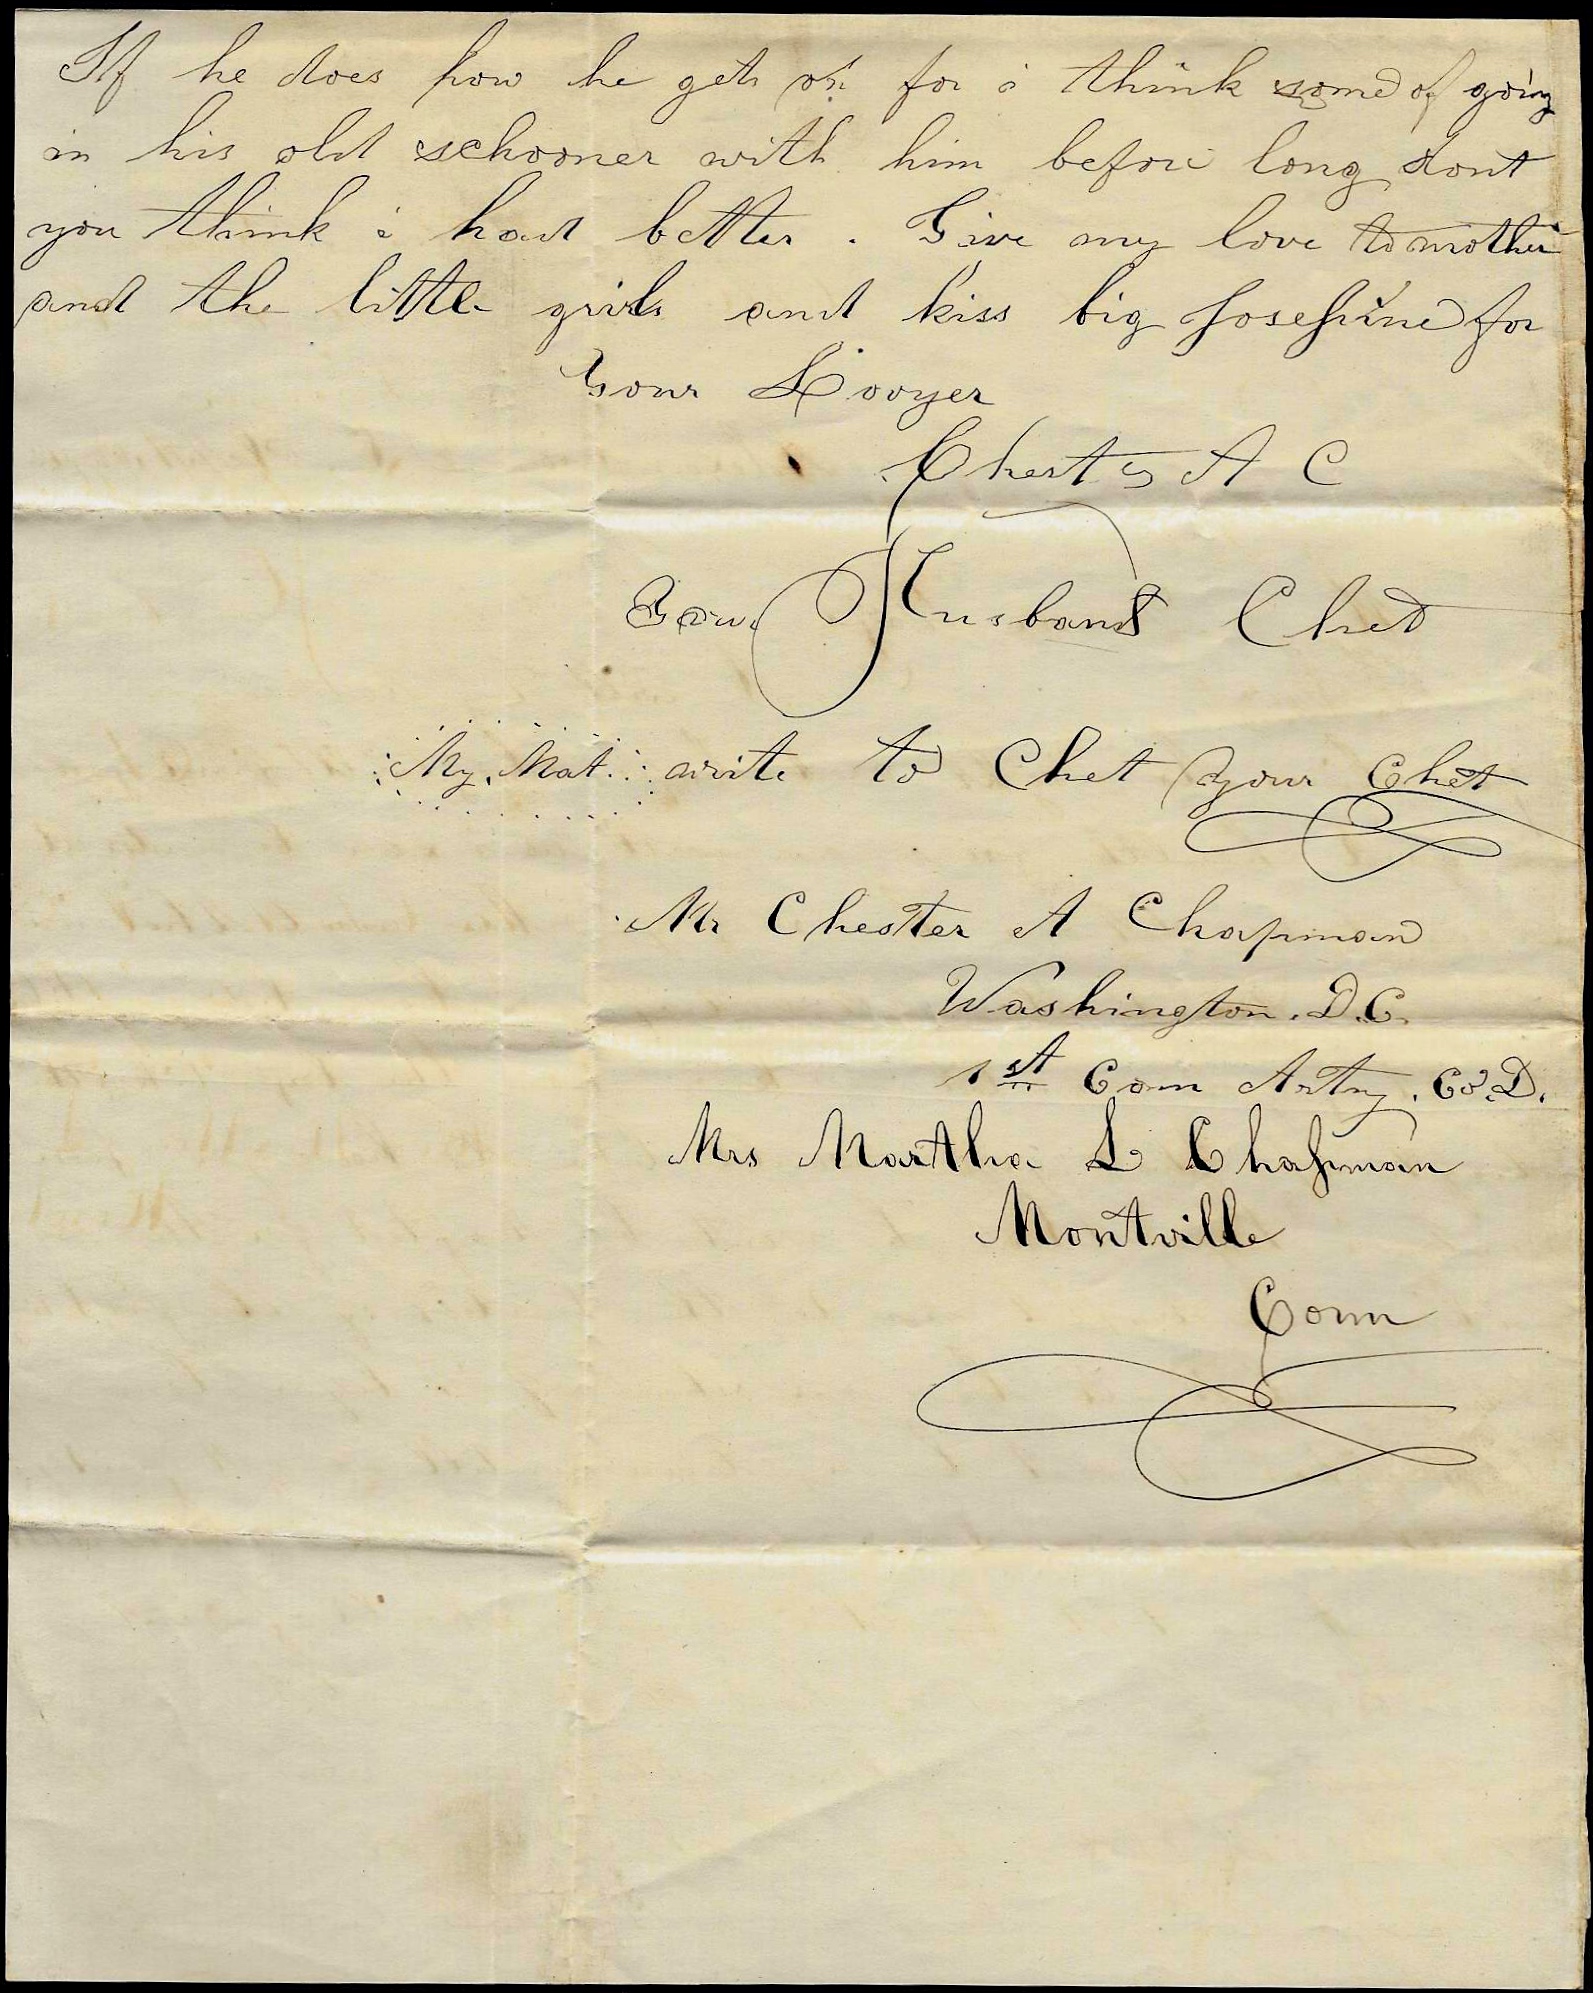 If he does how he gets on for i think some of going
in his old schooner with him before long dont
you think i had better. Give my love to mother
and the little girls and kiss big Josephine for
Your Lovyer
A C
Your Husband Chet
My Mat. write to Chet your Chet
Mr Chester A Chapman
Washington. D.C.
1st Conn Artry. Co. D.
Mrs Martha L Chapman
Montville
Conn